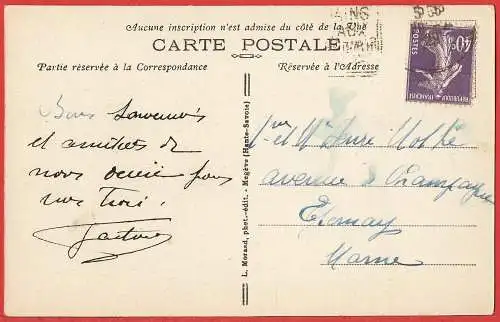 Aucune inscription n'est admise du côté de la Vue
CARTE POSTALE
Partie réservée à la Correspondance
Réservée à l'Adresse
AINS
40c
POSTES
REPUBLIQUE FRANÇAISE
Bons souvenirs
et amitiés de
nous
pour
nos Trois.
L. Morand, phot.-édit. - Megève (Haute-Savoie)
et Mme
avenue de Champagne
Epernay
Marne